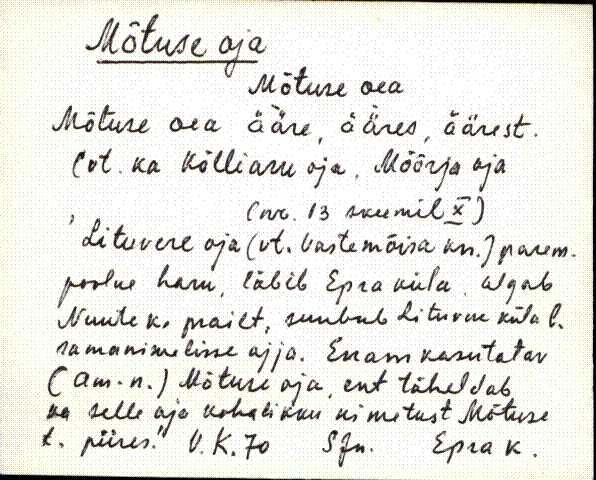 Mõtuse oja
Mõtuse oea
Mõtuse oea ääre, ääres, äärest.
(vt. ka Kõlliaru oja, Möörja oja
(nr. 13 skeemil X)
"Lituvere oja (vt. Vastemõisa kn.) parem-
poolne haru, läbib Epra küla. Algab
Nuute k. prailt, suubub Lituvere küla l.
samanimelisse ojja. Enam kasutatav
(am. n.) Mõtuse oja, ent täheldab
ka selle oja kohalikku nimetust Mõtuse
t. piires." V.K. 70 Sjn. Epra k.